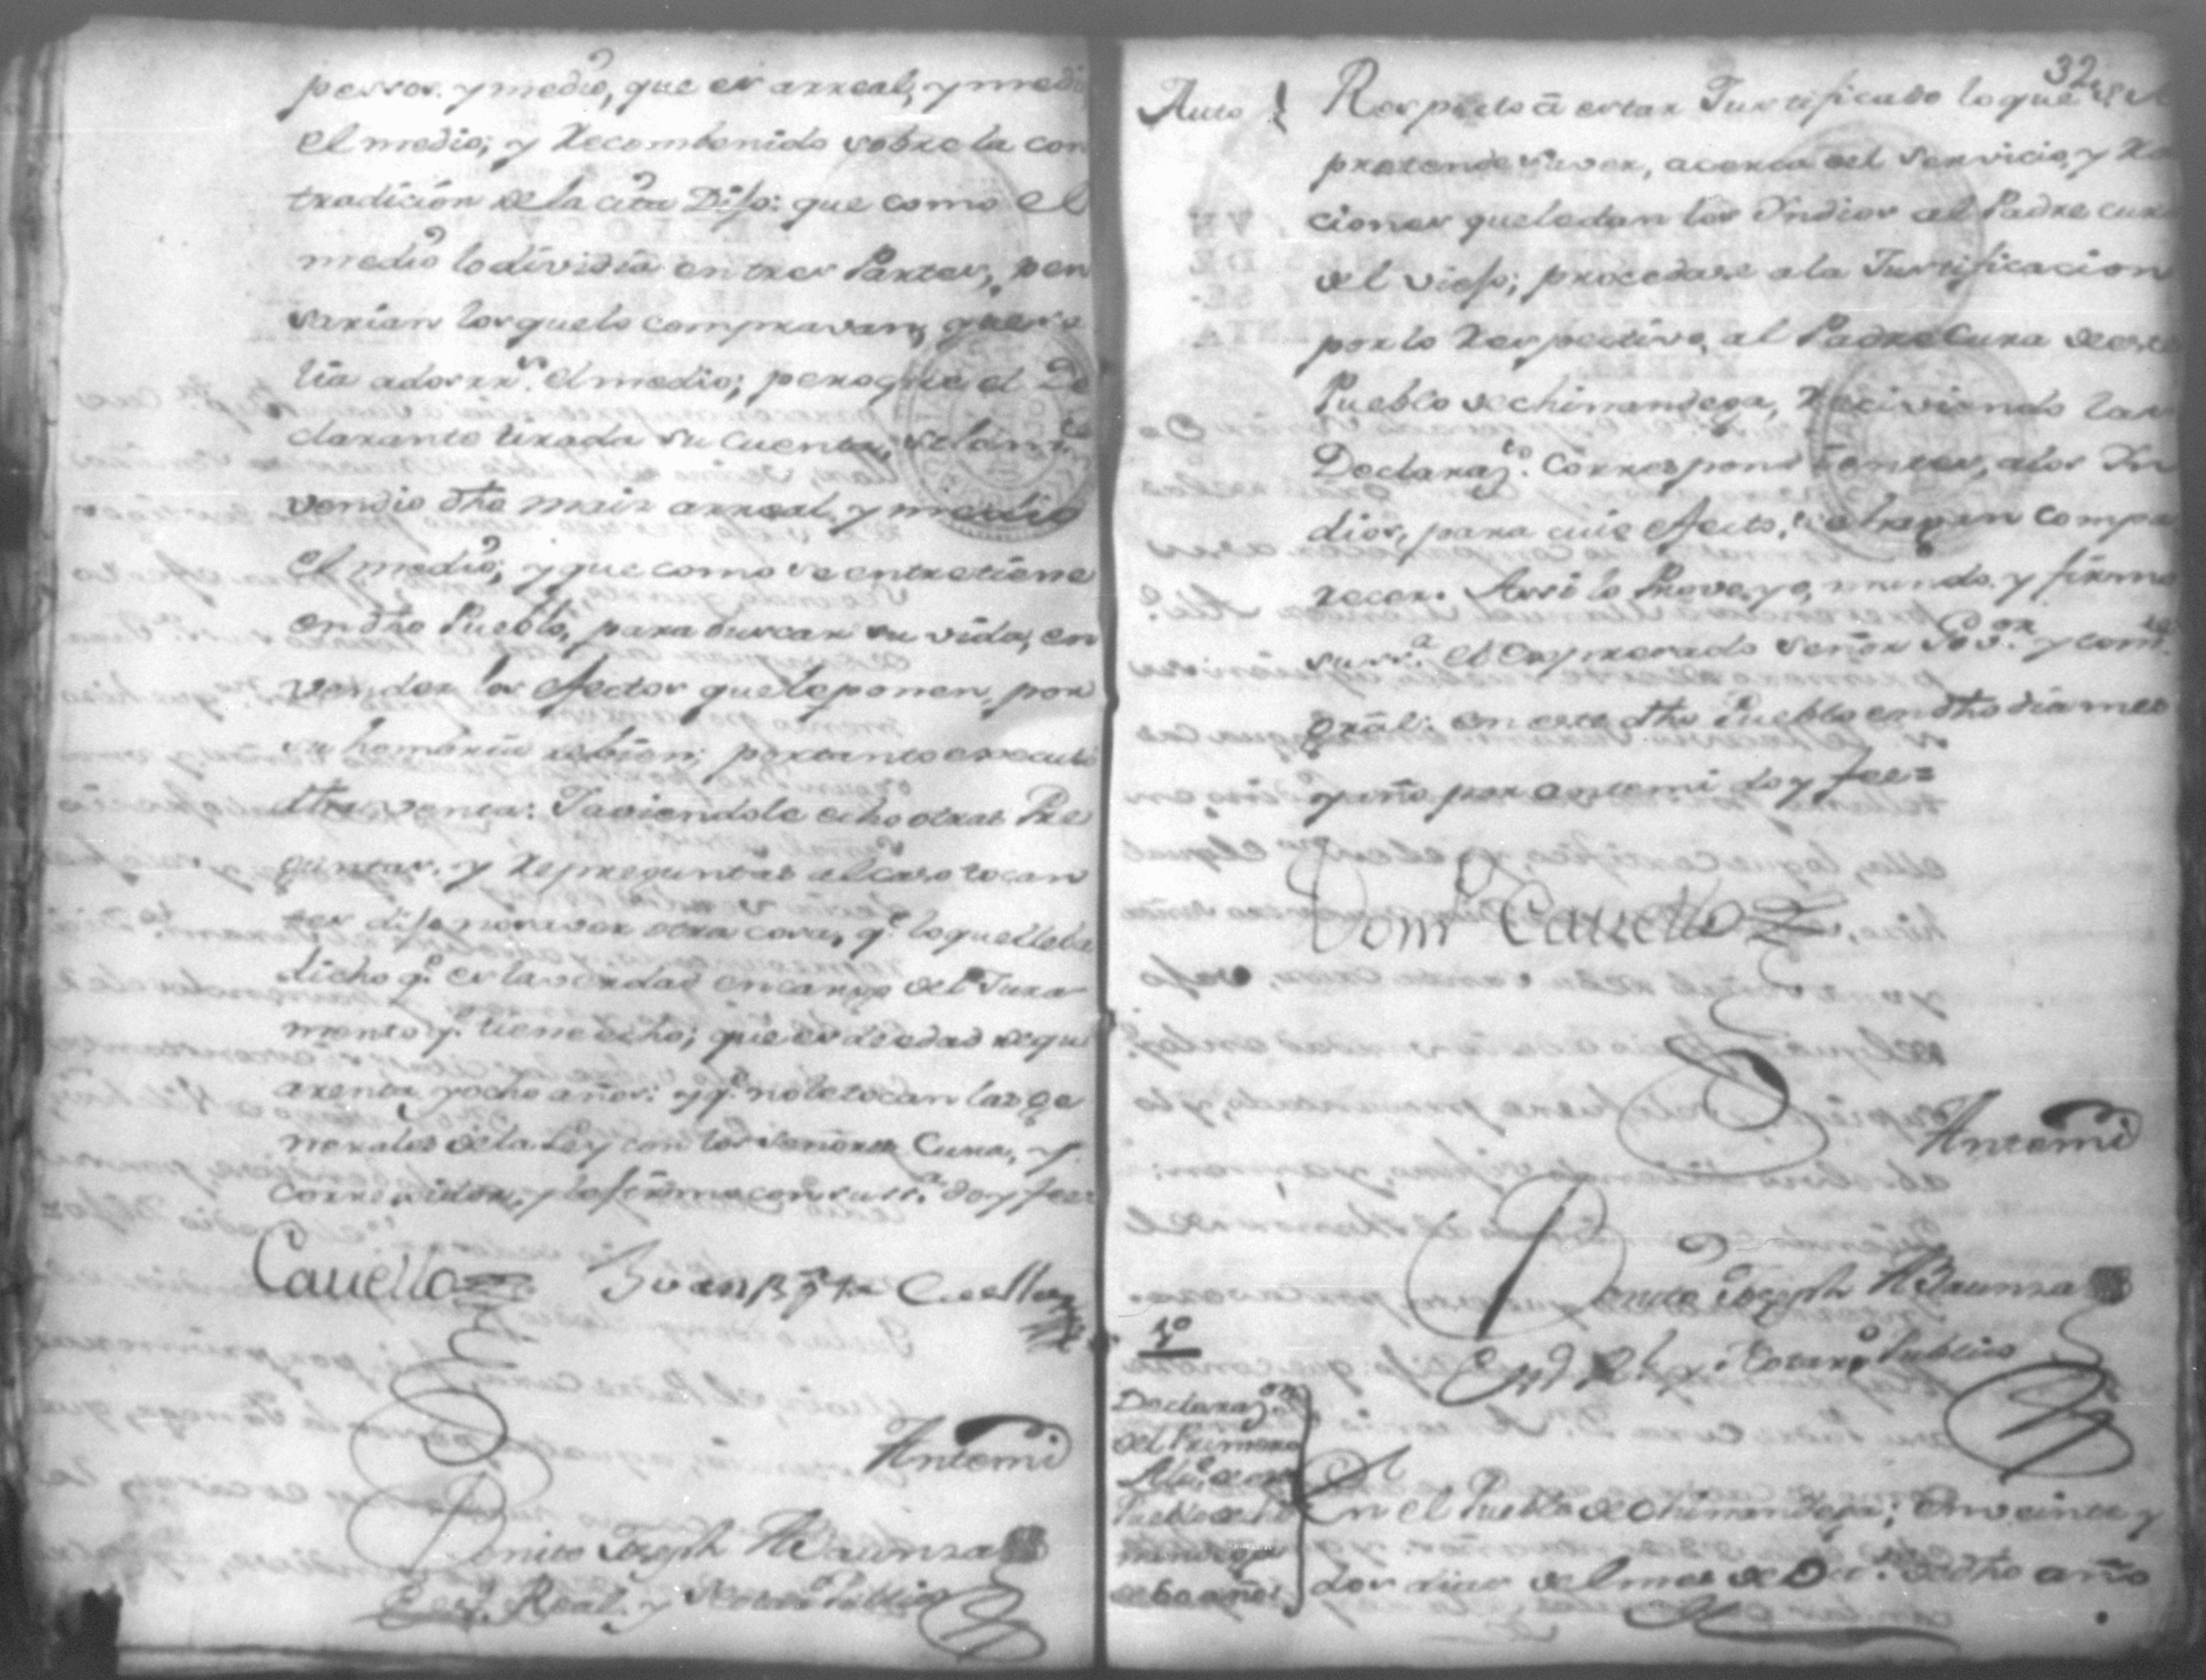 pessos y medio, que es arreal, y medio
el medio; y Recombenido sobre la con
tradicion de la cita Dijo: que como el
medio lo dividia en tres Partes, pen
sarian los que lo compravan, que
lia a dos rr.s el medio; pero que el De
clarante tirada su cuenta,
vendio dho mais arreal, y medio
el medio; y que como se entretiene
en dho Pueblo, para buscar su vida, en
vender los efectos que le ponen, por
su hombria de bien; por tanto executó
dha venta: Y aviendole echo otras Pre
guntas, y Repreguntas al caso tocan
tes dijo no saver otra cosa, q.e lo que lleba
dicho q.e es la verdad en cargo del Jura
mento q.e tiene echo; que es de edad de qu
arenta y ocho años: y q.e no le tocan las ge
nerales de la Ley con los señores Cura, y
corregidor, y lo firmo con su ss.a doy fee=
Cavello Juan Bpta Cuellar
Antemi
Benito Joseph
Es.no Real, y Notario Publico
32
Auto Respecto â estar Justificado lo que se
pretende saver, acerca del servicio, y Ra
ciones que le dan los Indios al Padre cura
del viejo; procedase a la Justificacion
por lo Respectivo, al Padre Cura de este
Pueblo de chinandega, Reciviendo las
Declaraz.s Correspondientes, a los In
dios, para cuio efecto, se hagan compa
recer. Assi lo Proveyo, mando, y firmo
su ss.a el expresado señor Gov.or y com.te
gral: en este dho Pueblo en dho dia mes
y año por antemi doy fee=
Dom.o Cavello
Antemi
Benito Joseph
Es.no Rl. y Notar.o Publico
1o
Declaraz.on
del Primero
Alc.e de este
Pueblo de chi
nandega
de 60 años
En el Pueblo de Chinandega; en veinte y
dos dias del mes de de dho año